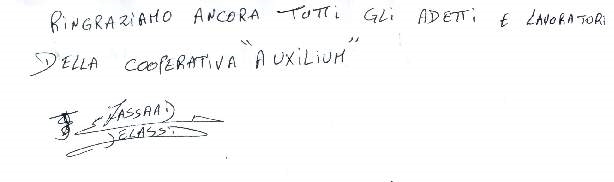 RINGRAZIAMO ANCORA TUTTI GLI ADETTI E LAVORATORI
DELLA COOPERATIVA "AUXILIUM"
JELASSI